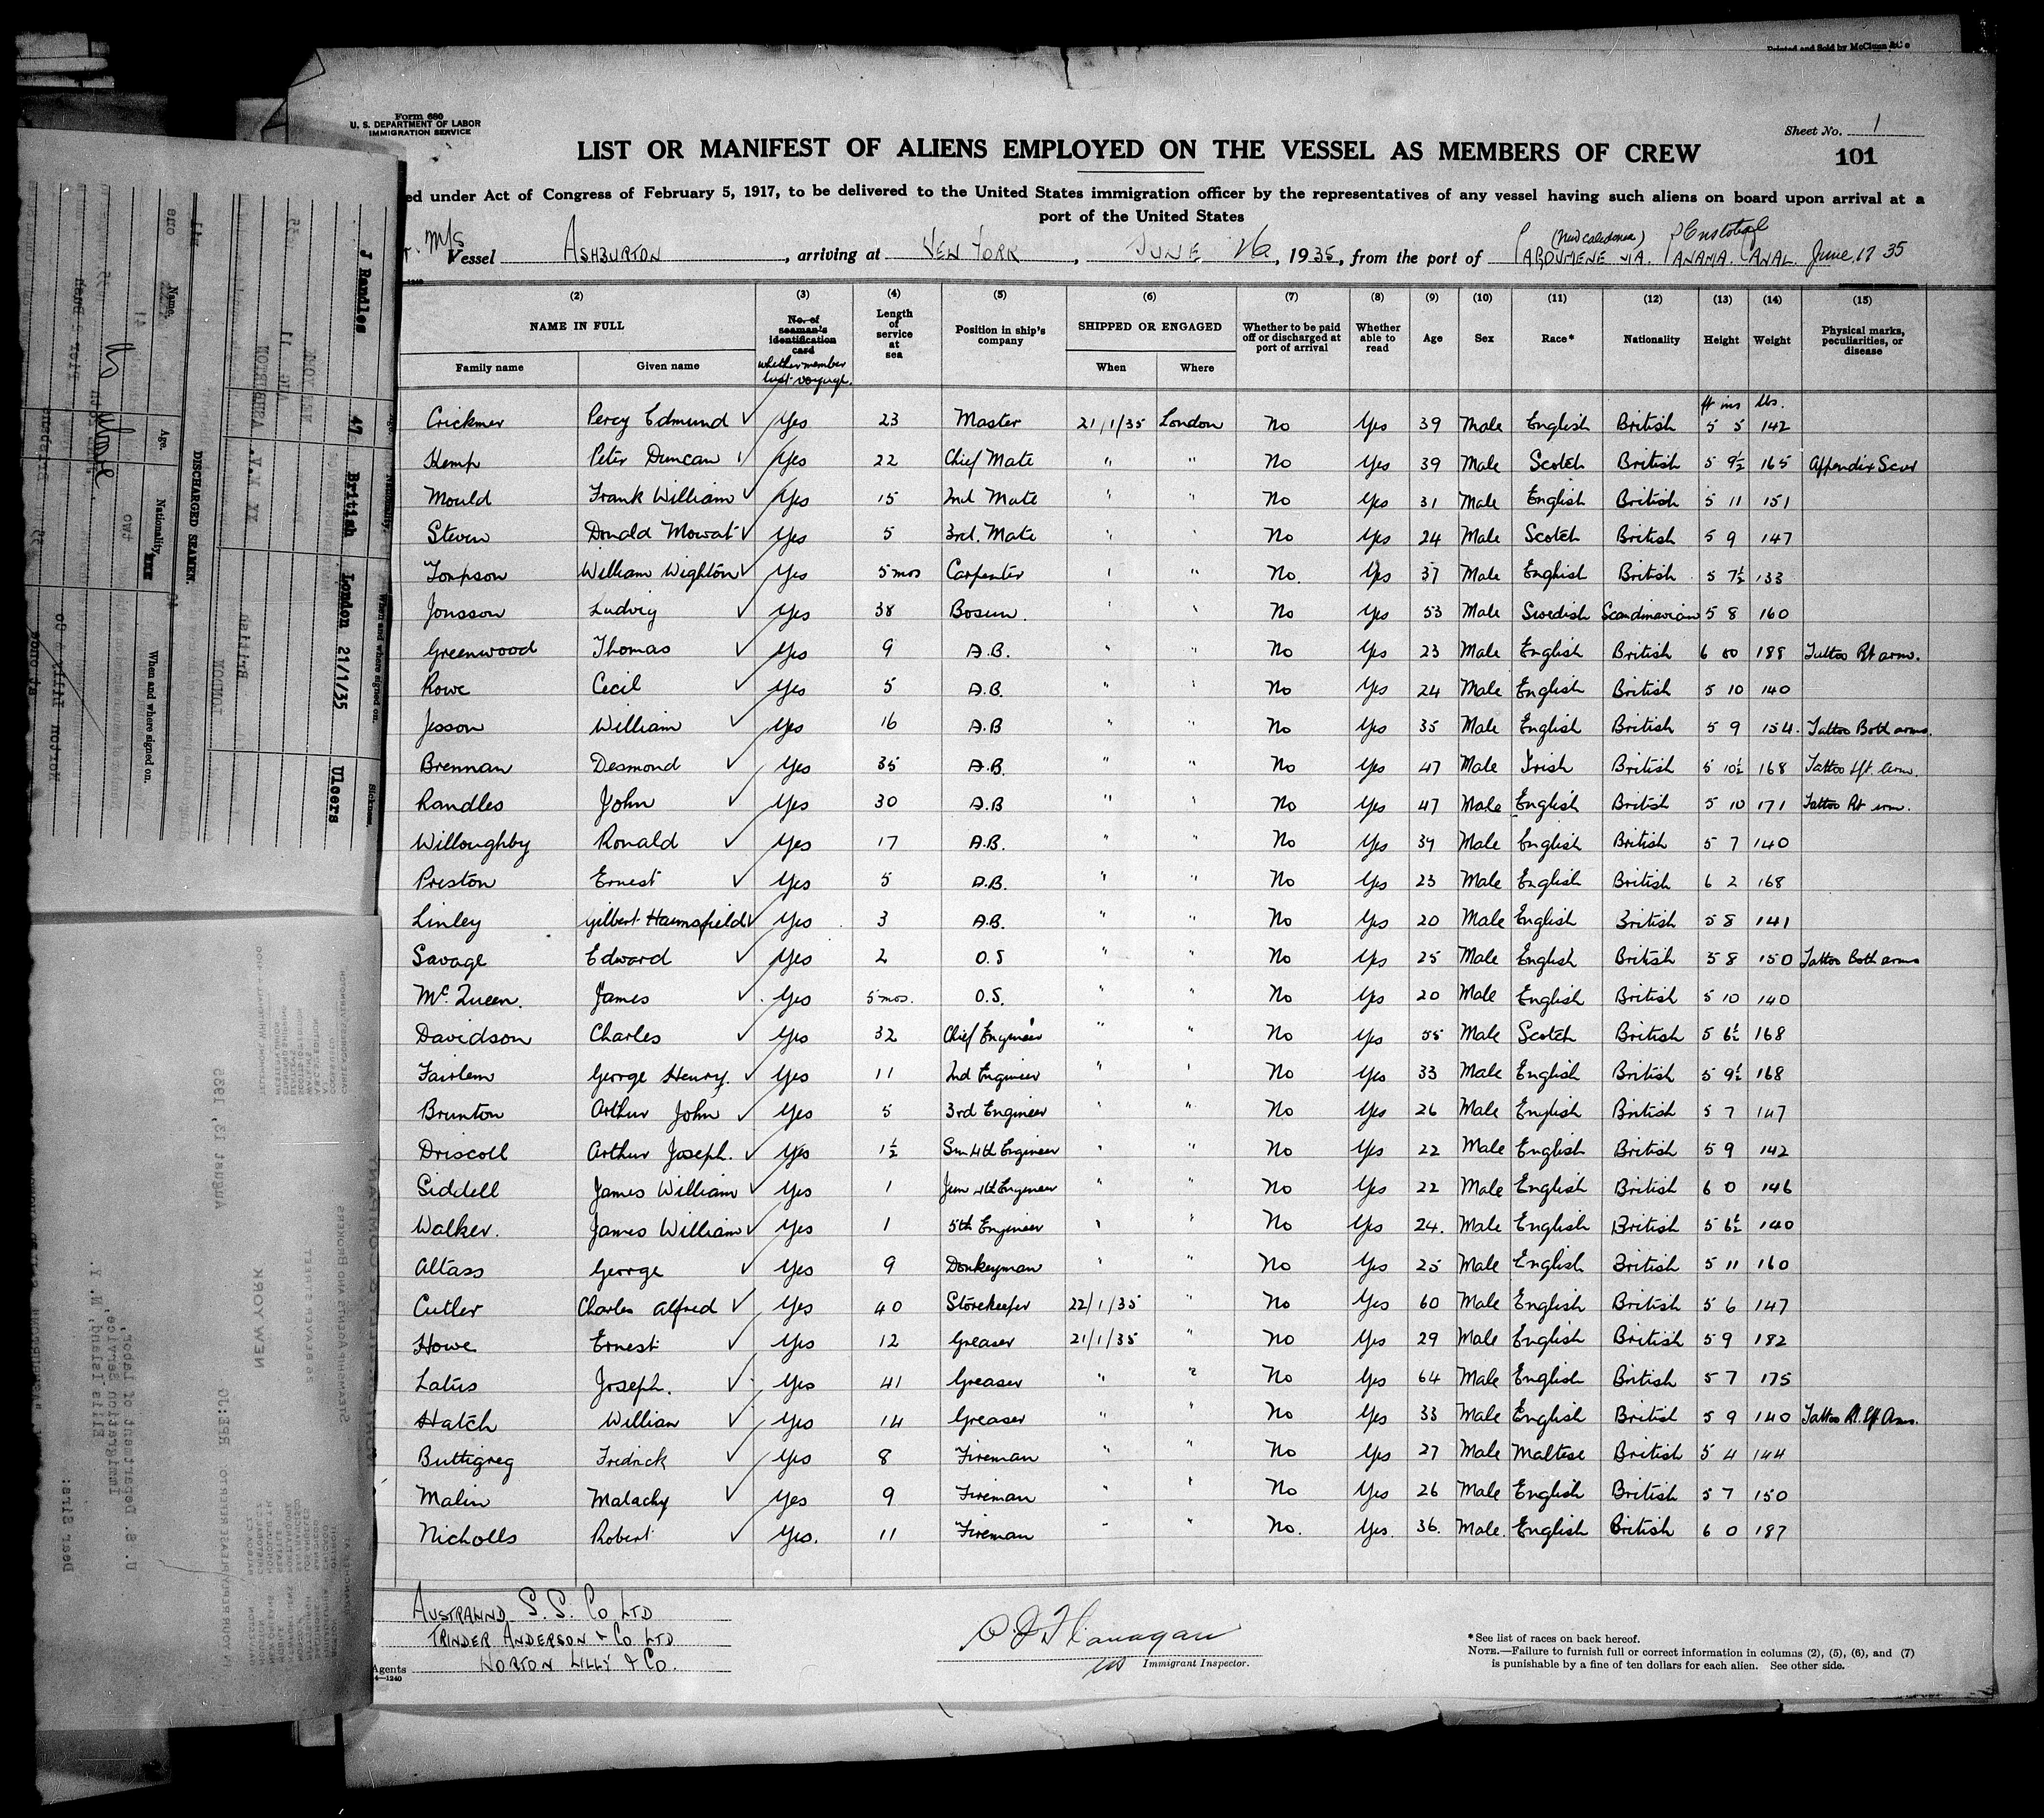 Printed and Sold by McClunn & Co
Form 680
U. S. DEPARTMENT OF LABOR
IMMIGRATION SERVICE
Sheet No. 1
LIST OR MANIFEST OF ALIENS EMPLOYED ON THE VESSEL AS MEMBERS OF CREW
101
ed under Act of Congress of February 5, 1917, to be delivered to the United States immigration officer by the representatives of any vessel having such aliens on board upon arrival at a
port of the United States
M/S Vessel ASHBURTON, arriving at NEW YORK, JUNE 26, 1935, from the port of (New Caledonia) VIA. PANAMA CANAL. June 17 35
(2) (3) (4) (5) (6) (7) (8) (9) (10) (11) (12) (13) (14) (15)
NAME IN FULL No. of seaman's identification card whether member last voyage. Length of service at sea Position in ship's company SHIPPED OR ENGAGED Whether to be paid off or discharged at port of arrival Whether able to read Age Sex Race* Nationality Height Weight Physical marks, peculiarities, or disease
Family name Given name When Where
ft ins lbs.
Crickmer Percy Edmund Yes 23 Master 21/1/35 London No Yes 39 Male English British 5 5 142
Kemp Peter Duncan Yes 22 Chief Mate " " No Yes 39 Male Scotch British 5 9½ 165 Appendix Scar
Mould Frank William Yes 15 2nd Mate " " No Yes 31 Male English British 5 11 151
Steven Donald Mowat Yes 5 3rd. Mate " " No Yes 24 Male Scotch British 5 9 147
William Wighton Yes 5 mos Carpenter " " No. Yes 37 Male English British 5 7½ 133
Jonsson Ludvig Yes 38 Bosun. " " No Yes 53 Male Swedish Scandinavian 5 8 160
Greenwood Thomas Yes 9 A.B. " " No Yes 23 Male English British 6 00 188 Tattoo Rt arm.
Rowe Cecil Yes 5 A.B. " " No Yes 24 Male English British 5 10 140
Jesson William Yes 16 A.B " " No Yes 35 Male English British 5 9 154. Tattoo Both arms.
Brennan Desmond Yes 35 A.B. " " No Yes 47 Male Irish British 5 10½ 168 Tattoo Lft. Arm.
Randles John Yes 30 A.B " " No Yes 47 Male English British 5 10 171 Tattoo Rt arm.
Willoughby Ronald Yes 17 A.B. " " No Yes Male English British 5 7 140
Preston Ernest Yes 5 A.B. " " No Yes 23 Male English British 6 2 168
Linley Gilbert Yes 3 A.B. " " No Yes 20 Male English British 5 8 141
Savage Edward Yes 2 O.S " " No Yes 25 Male English British 5 8 150 Tattoo Both arms
Mc. Queen. James Yes 5 mos. O.S. " " No Yes 20 Male English British 5 10 140
Davidson Charles Yes 32 Chief Engineer " " No Yes 55 Male Scotch British 5 6½ 168
Fairlem George Henry. Yes 11 2nd Engineer " " No Yes 33 Male English British 5 9½ 168
Brunton Arthur John Yes 5 3rd Engineer " " No Yes 26 Male English British 5 7 147
Driscoll Arthur Joseph. Yes 1½ Sen 4th Engineer " " No Yes 22 Male English British 5 9 142
Siddell James William Yes 1 Jun 4th Engineer " " No Yes 22 Male English British 6 0 146
Walker. James William Yes 1 5th Engineer " " No Yes 24. Male English British 5 6½ 140
Altass George Yes 9 Donkeyman " " No Yes 25 Male English British 5 11 160
Cutler Charles Alfred Yes 40 Storekeeper 22/1/35 " No Yes 60 Male English British 5 6 147
Howe Ernest Yes 12 Greaser 21/1/35 " No Yes 29 Male English British 5 9 182
Latus Joseph. Yes 41 Greaser " " No Yes 64 Male English British 5 7 175
Hatch William Yes 14 Greaser " " No Yes 33 Male English British 5 9 140 Tattoo Rt. Lft Arms.
Buttigieg Fredrick Yes 8 Fireman " " No Yes 27 Male Maltese British 5 4 144
Malin Malachy Yes 9 Fireman " " No Yes 26 Male English British 5 7 150
Nicholls Robert Yes. 11 Fireman " " No. Yes. 36. Male. English British 6 0 187
AUSTRALIND S.S. CO LTD
TRINDER ANDERSON & CO LTD
Agents NORTON LILLY & CO.
4—1240
Flanagan
Immigrant Inspector.
*See list of races on back hereof.
NOTE.—Failure to furnish full or correct information in columns (2), (5), (6), and (7)
is punishable by a fine of ten dollars for each alien. See other side.
J Randles 47 British London 21/1/35 Ulcers
Name. Age. Nationality. When and where signed on. Sickness.
DISCHARGED SEAMEN.
August 13, 1935
NEW YORK
26 BEAVER STREET
STEAMSHIP AGENTS AND BROKERS
IN YOUR REPLY PLEASE REFER TO RPE:JG
U. S. Department of Labor,
Immigration Service,
Ellis Island, N. Y.
Dear Sirs: